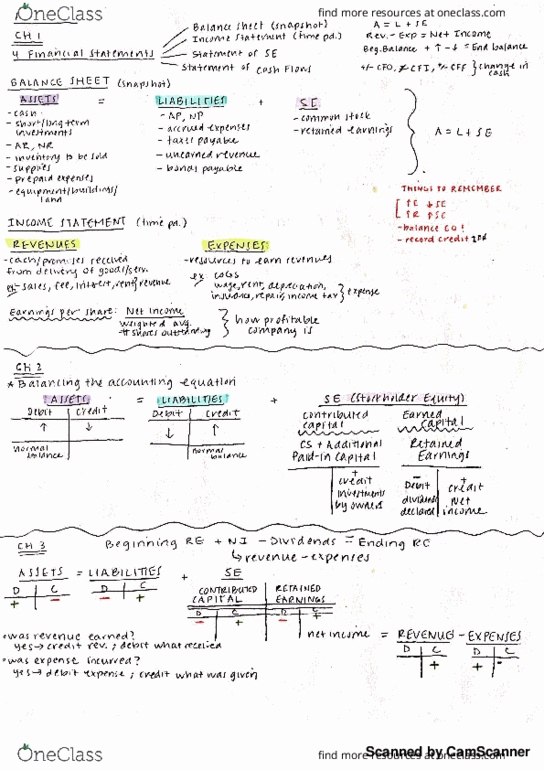 OneClass
find more resources at oneclass.com
CH 1
4 Financial Statements
Balance Sheet (snapshot)
Income Statement (time pd.)
Statement of SE
Statement of Cash Flows
A = L + SE
Rev. - Exp = Net Income
Beg. Balance + ↑ - ↓ = End balance
+/- CFO, +/- CFI, +/- CFF } change in cash
BALANCE SHEET (snapshot)
ASSETS = LIABILITIES + SE
- cash
- short/long term investments
- AR, NR
- inventory to be sold
- supplies
- prepaid expenses
- equipment/buildings/
land
- AP, NP
- accrued expenses
- taxes payable
- unearned revenue
- bonds payable
- common stock
- retained earnings
A = L + SE
THINGS TO REMEMBER
↑E ↓SE
↑R ↑SE
- balance EQ!
- record credit 2nd
INCOME STATEMENT (time pd.)
REVENUES
- cash/promises received
from delivery of goods/serv.
ex: sales, fee, interest, rent } revenue
EXPENSES
- resources to earn revenues
ex: COGS
wage, rent, depreciation,
insurance, repair, income tax } expense
Earnings per share: Net income
weighted avg.
# shares outstanding
} how profitable
company is
CH 2
* Balancing the accounting equation
ASSETS = LIABILITIES + SE (Stockholder Equity)
Debit Credit
↑ ↓
normal
balance
Debit Credit
↓ ↑
normal
balance
contributed
capital
CS + Additional
Paid-in Capital
+
credit
investments
by owners
Earned
capital
Retained
Earnings
-
Debit
dividends
declared
+
credit
Net
income
CH 3
Beginning RE + NI - Dividends = Ending RE
↳ revenue - expenses
ASSETS = LIABILITIES + SE
D C
+ -
D C
- +
CONTRIBUTED
CAPITAL
D C
- +
RETAINED
EARNINGS
D C
- +
• was revenue earned?
yes → credit rev.; debit what received
• was expense incurred?
yes → debit expense; credit what was given
net income = REVENUE - EXPENSES
D C
+
D C
+ -
OneClass
find more resources at oneclass.com
Scanned by CamScanner